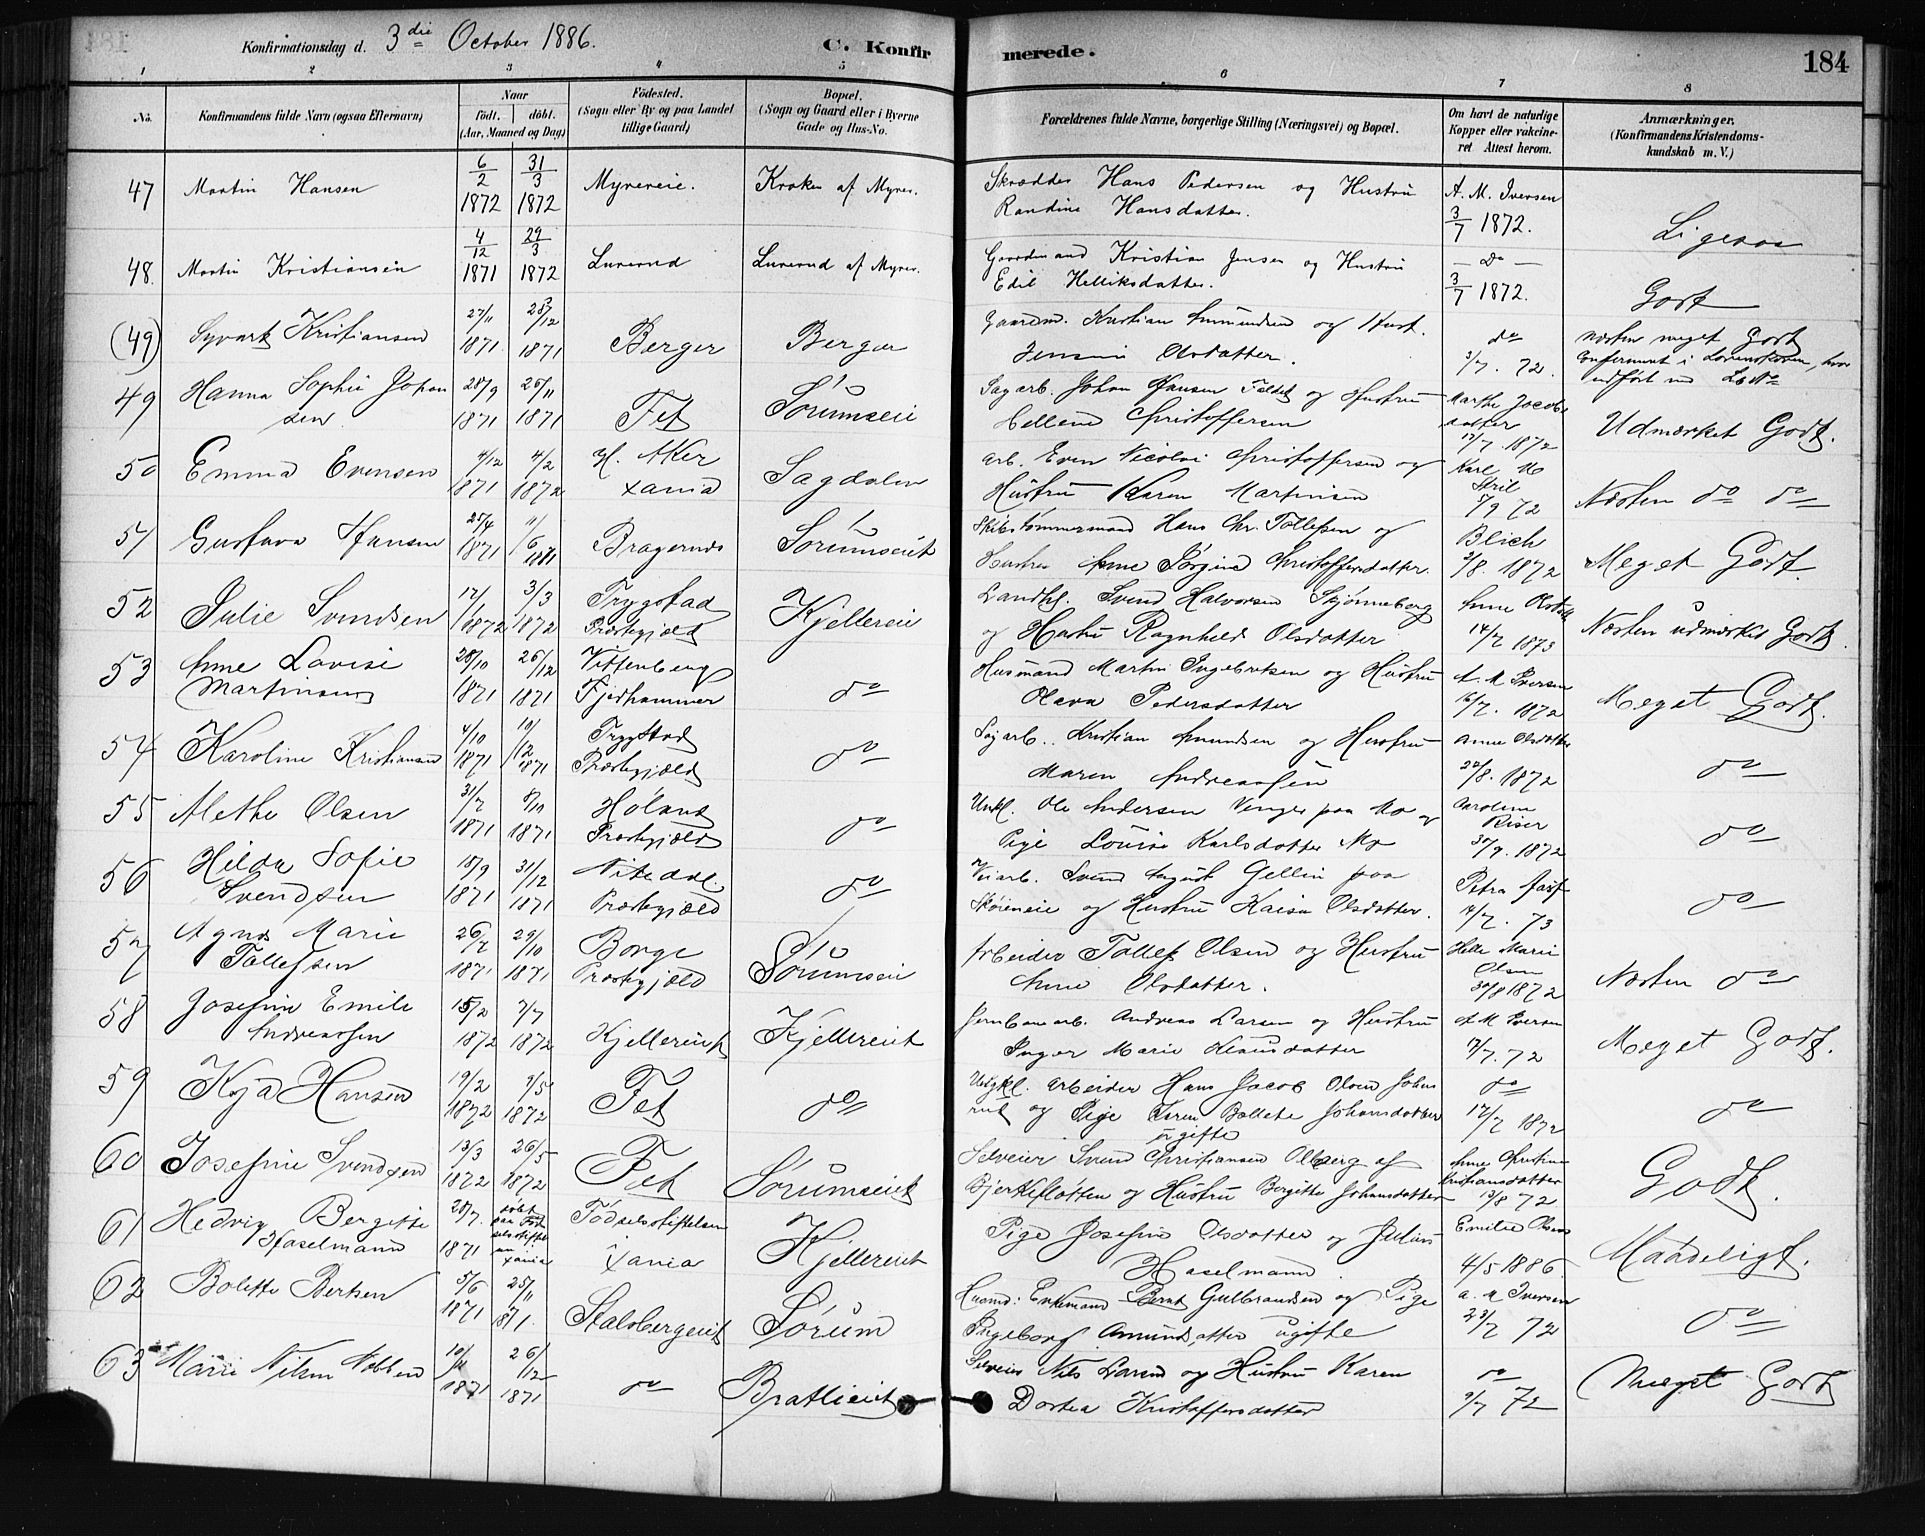 Konfirmationsdag d. 3die October 1886. C. Konfirmerede. 184
1 2 3 4 5 6 7 8
No. Konfirmandens fulde Navn (ogsaa Efternavn) Naar født. døbt. (Aar, Maaned og Dag) Fødested. (Sogn eller By og paa Landet tillige Gaard) Bopæl. (Sogn og Gaard eller i Byerne Gade og Hus-No. Forældrenes fulde Navne, borgerlige Stilling (Næringsvei) og Bopæl. Om havt de naturlige Kopper eller vakcineret Attest herom. Anmærkninger. (Konfirmandens Kristendomskundskab m. V.)
47 Martin Hansen 6/2 1872 31/3 1872 Myrereie. Kroken af Myrer. Skrædder Hans Pedersen og Hustru
Randine Hansdatter. A. M. Iversen 3/7 1872. Ligesaa
48. Martin Kristiansen 4/12 1871 29/3 1872 Lurerud Lurerud af Myrer. Gaardmand Kristian Jensen og Hustru
Edil Helliksdatter. — Do — 3/7 1872. Godt
(49) Syvert Kristiansen 27/11 1871 28/12 1871 Berger Berger Gaardm. Kristian Amundsen og Hust.
Jensine Olsdatter. do 3/7. 72. næsten meget Godt
49 Hanna Sophie Johansen 28/9 1871 26/11 1871 Fet Sørumseie Sagarb. Johan Hansen Faldet og Hustru
Hellene Christoffersen Marthe Jacobsdatter 17/7 1872 Udmærket Godt.
50 Emma Evensen 4/12 1871 4/2 1872 V. Aker Xania Sagdalen Arb. Even Nicolai Christoffersen og
Hustru Karen Martinsen Karl M 7/9 72 Næsten do do
51 Gustava Hansen 25/4 1871 11/6 1871 Bragernes Sørumseiet Skibstømmermand Hans Chr. Tollefsen og
Hustru Anne Jørgine Christoffersdatter. Blich 2/8. 1872 Meget Godt.
52 Julie Svendsen 17/1 1872 3/3 1872 Trygstad Præstegjæld Kjellereie Landhl. Svend Halvorsen Skjønneberg
og Hustru Ragnhild Olsdatter Anne Olsdatter 14/7 1873 Næsten udmærket Godt
53 Anne Lovise Martinsen 28/10 1871 26/12 1871 Vittenberg Fjedhammer do Husmand Martin Ingebretsen og Hustru
Olava Pedersdatter A. M Iversen 16/7. 1872 Meget Godt.
54 Karoline Kristiansen 4/10 1871 10/12 1871 Trygstad Præstegjæld do Sagarb. Kristian Amundsen og Hustru
Maren Andreassen Anne Olsdatter 22/8. 1872 do
55 Mathe Olsen 31/7 1871 8/10 1871 Høland Præstegjæld do Ungk. Ole Andersen Venger paa Mo og
Pige Lovise Karlsdatter Mo Karoline Riser 30/9. 1872 do
56 Hilda Sofie Svendsen 18/9 1871 31/12 1871 Nitedal Præstegjæld do Veiarb. Svend August Gellin paa
Skøieneie og Hustru Kaisa Olsdatter. Petra 14/7. 73 do
57 Agnes Marie Tollefsen 26/7 1871 29/10 1871 Borge Præstegjæld Sørumseie Arbeider Tollef Olsen og Hustru
Anne Olsdatter. Helle Marie Olsen 30/8 1872 Næsten do
58 Josefine Emilie Andreassen 15/2 1872 7/7 1872 Kjellereiet Kjellereiet Jernbanearb. Andreas Larsen og Hustru
Inger Marie Klausdatter A M Iversen 17/7. 72 Meget Godt.
59 Kaja Hansen 19/2 1872 9/5 1872 Fet do Ungkl. arbeider Hans Jacob Olsen Johnsrud
og Pige Iren Bollete Johansdatter
ugifte do 17/7 1872 do
60 Josefine Svendsen 13/3 1872 26/5 1872 Fet Sørumseiet Selveier Svend Christiansen Olberg af
Bjerkeslotten og Hustru Bergitte Johansdatter Anne Christine Kristiansdatter 13/8 72 Godt.
61 Hedvig Bergitte Haselmann 28/7. 1871 døbt paa Fødselsstiftelsen Xania Fødselsstiftelsen Xania Kjellereiet Pige Josefine Olsdatter og Julius
Haselmann Emilie Olsen 4/5 1886. Maadeligt.
62 Bolette Berhsen 5/6 1871 25/11 1871. Stalsbergeiet Sørum Husmd: Enkemand Bernt Gulbrandsen og Pige
Ingeborg Amundsdatter ugifte A. M Iversen 23/7 72 do
63 Marie Nilsen Nebben 10/11 1871 26/12 1871 do Bratlieiet Selveier Nils Larsen og Hustru Karen
Dortea Kristoffersdatter do 9/7 72 Meget Godt